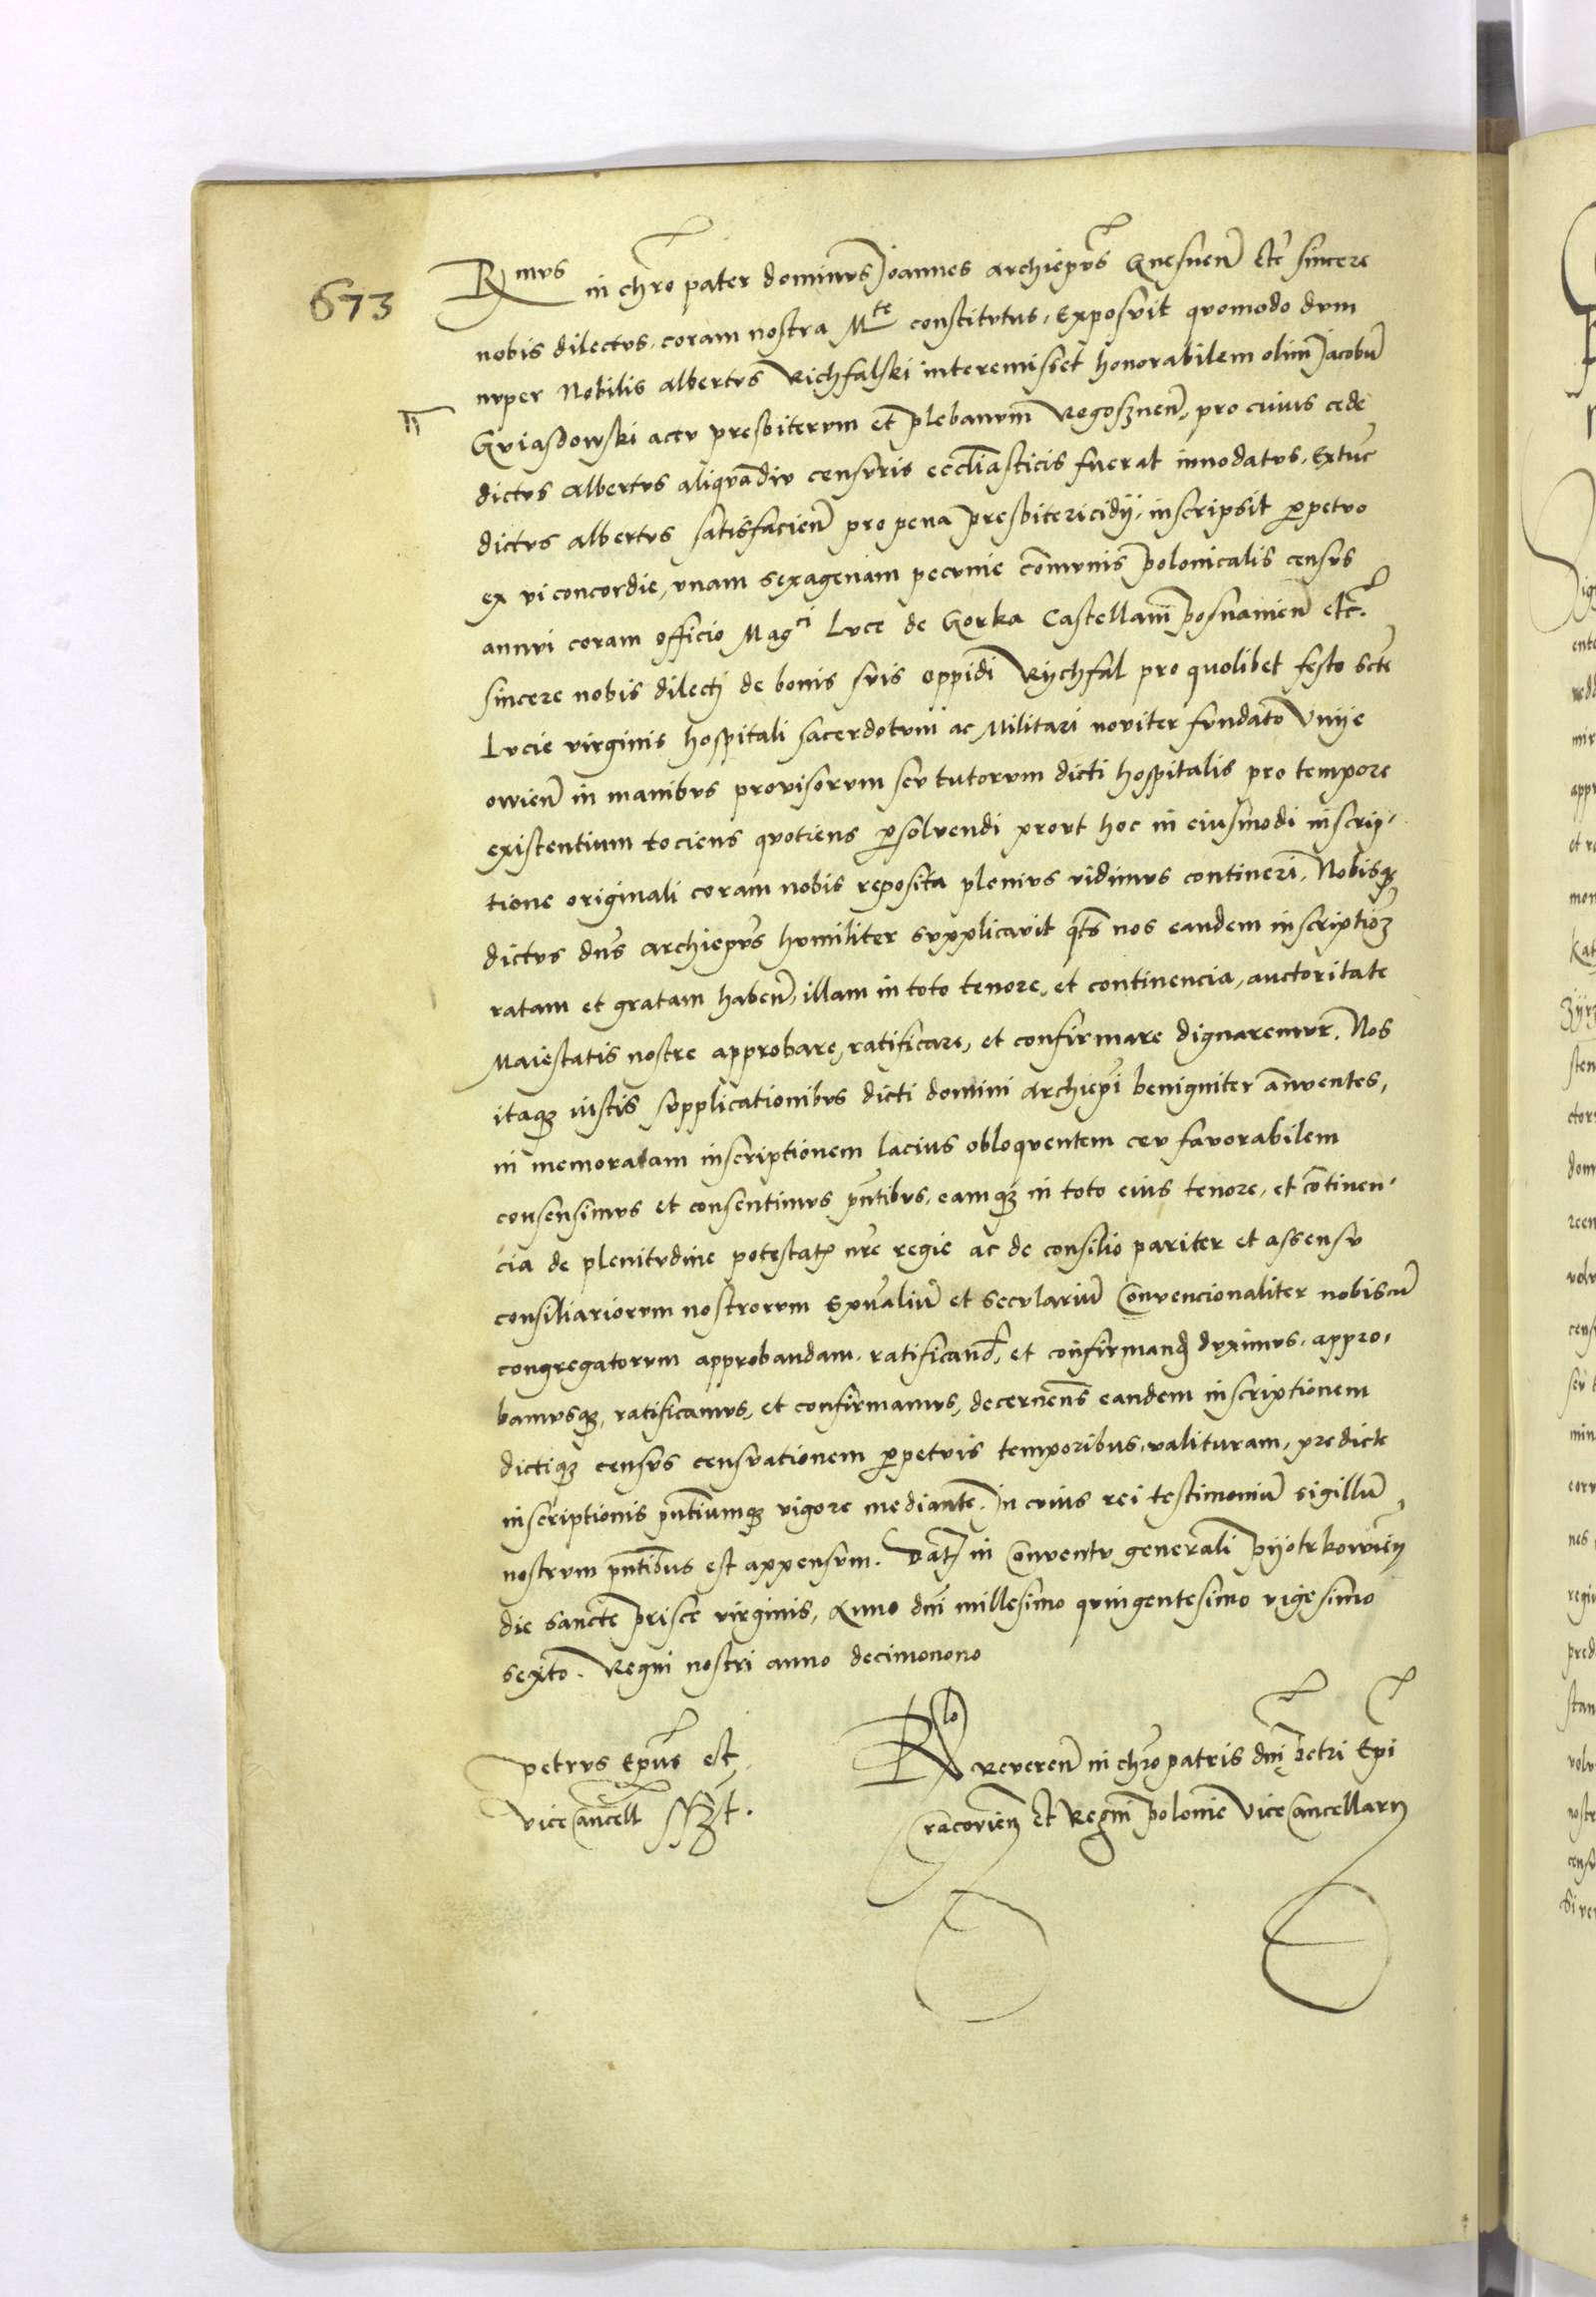 673
Rmus in chro pater dominus Joannes archieprs Gnesnen etc sincere
nobis dilectus, coram nostra Mte constitutus, Exposuit quomodo dum
nuper Nobilis albertus Richfalski interemisset honorabilem olim Jacobu
Gviasdowski aceu presbiterum et plebanum Rogosznen, pro cuius cede
dictus albertus aliquadiu censuris eccliasticis fuerat innodatus, Extuc
dictus albertus satisfacien pro pena presbitericidij, inscripsit perpetuo
ex vi concordie, unam sexagenam pecunie comunis polonicalis census
annui coram officio Magci Luce de Gorka Castellani posnanien etc.
sincere nobis dilecti de bonis suis oppidi Rychfal pro quolibet festo scte
Lucie virginis hospitali sacerdotum ac Militari noviter fundato Vnije
owien in manibus provisorum seu tutorum dicti hospitalis pro tempore
existentium tociens quotiens persolvendi prout hoc in eiusmodi inscrip-
tione originali coram nobis reposita plenius vidimus contineri. Nobisque
dictus dns archieprs humiliter supplicavit qts nos eandem inscriptioz
ratam et gratam haben, illam in toto tenore, et continencia, auctoritate
Maiestatis nostre approbare, ratificare, et confirmare dignaremur. Nos
itaque iustis supplicationibus dicti domini archiepi benigniter anuentes,
in memoratam inscriptionem lacius obloquentem ceu favorabilem
consensimus et consentimus pntibus, eamque in toto eius tenore, et continen-
cia de plenitudine potestatis nre regie ac de consilio pariter et assensu
consiliariorum nostrorum spualiu et seculariu Convencionaliter nobiscu
congregatorum approbandam, ratificand, et confirmand duximus, appro-
bamusque, ratificamus, et confirmamus, decernens eandem inscriptionem
dictique census censuationem perpetuis temporibus, valituram, predicte
inscriptionis pntiumque vigore mediante. In cuius rei testimoniu sigillu
nostrum pntibus est appensum. Dat in Conventu generali Pijotrkovien
die sancte Prisce virginis, Anno dni millesimo quingentesimo vigesimo
sexto. Regni nostri anno decimonono
Petrus Epus et
vice Cancell sszt.
Rlo Reveren in chro patris dni Petri Epi
Cracovien et Regni Polonie Vice Cancellarij